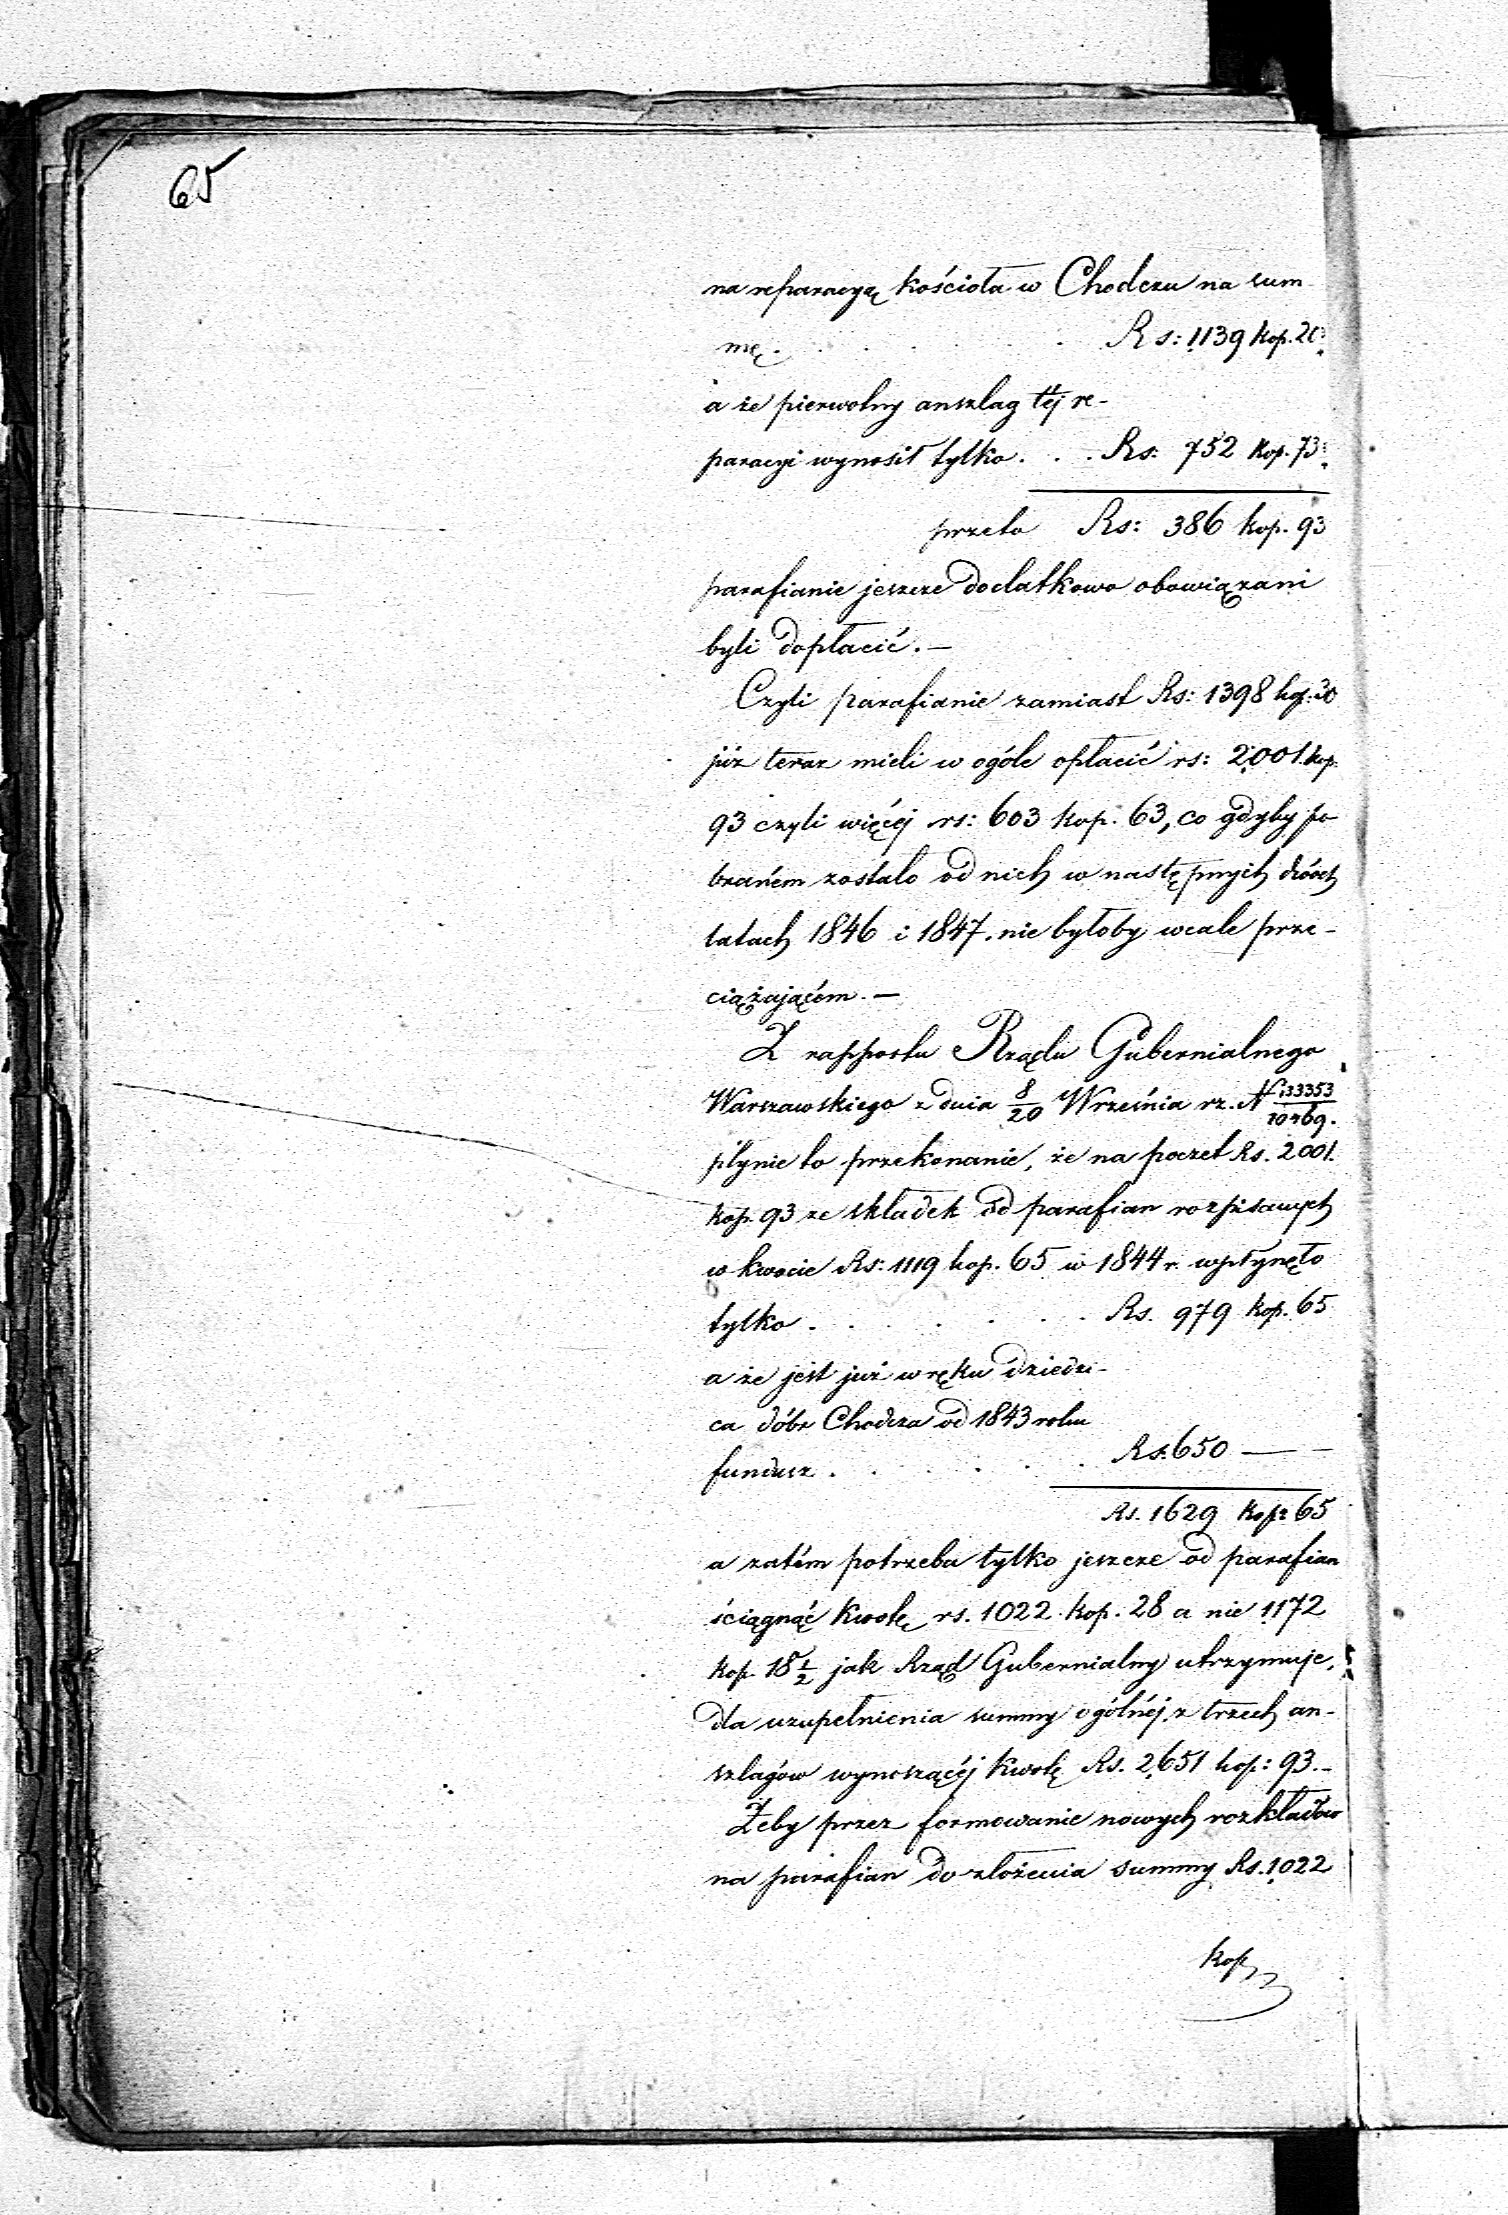 65
na reparacyą kościoła w Chodczu na sum
mę . . . . . . Rs: 1139 kop. 20:
a że pierwolny anszlag téj re-
paracyi wynosił tylko . . . Rs: 752 kop. 73:
przeto Rs: 386 kop. 93
parafianie jeszcze dodatkowo obowiązani
byli dopłacić. —
Czyli parafianie zamiast Rs: 1398 kop. 30
już teraz mieli w ogóle opłacić rs: 2001. kop.
93 czyli więcéj rs: 603 kop. 63, co gdyby po
braném zostało od nich w następnych dwóch
latach 1846 i 1847. nie byłoby wcale prze-
ciążającém. —
Z rapportu Rządu Gubernialnego
Warszawskiego z dnia 8/20 Września rz. N 133353/
płynie to przekonanie, że na poczet Rs. 2001.
kop. 93 ze składek od parafian rozpisanych
w kwocie Rs: 1119 kop. 65 w 1844 r. wpłynęło
tylko . . . . . . . Rs. 979 kop. 65
a że jest już w ręku dziedzi-
ca dóbr Chodcza od 1843 roku
fundusz . . . . . . Rs: 650 — —
Rs. 1629 kop: 65
a zatém potrzeba tylko jeszcze od parafian
ściągnąć kwotę rs. 1022 kop. 28 a nie 1172
kop. 18 1/2 jak Rząd Gubernialny utrzymuje,
dla uzupełnienia summy ogólnéj z trzech an-
szlagów wynoszącéj kwotę Rs. 2651 kop: 93. -
Żeby przez formowanie nowych rozkładów
na parafian do złożenia summy Rs. 1022
kop